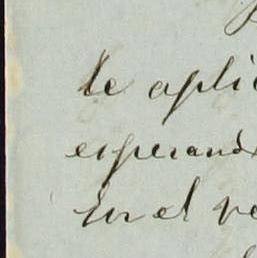 te apli
esperand
en el re